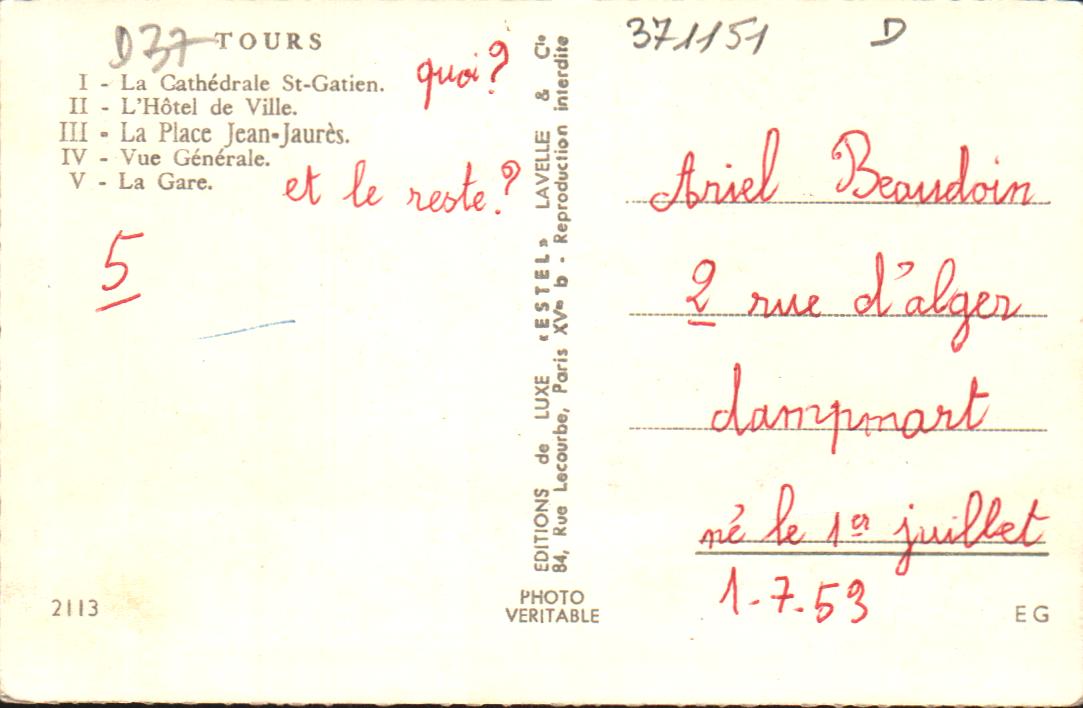 D37
TOURS
I - La Cathédrale St-Gatien.
II - L'Hôtel de Ville.
III - La Place Jean-Jaurès.
IV - Vue Générale.
V - La Gare.
quoi?
et le reste?
5
2113
EDITIONS de LUXE «ESTEL» LAVELLE & Cie
84, Rue Lecourbe, Paris XVme b - Reproduction interdite
PHOTO
VERITABLE
371151 D
Ariel Beaudoin
2 rue d'alger
dampmart
né le 1er juillet
1-7-53
EG